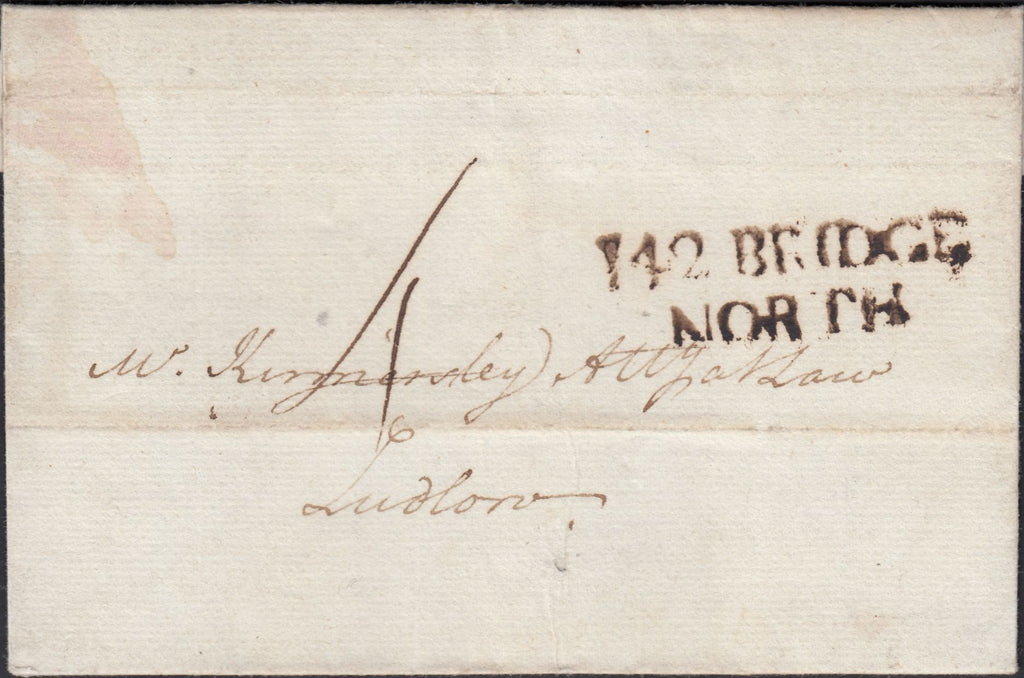 142 BRIDGE
NORTH
4
Mr. Kinnersley Atty at Law
Ludlow.